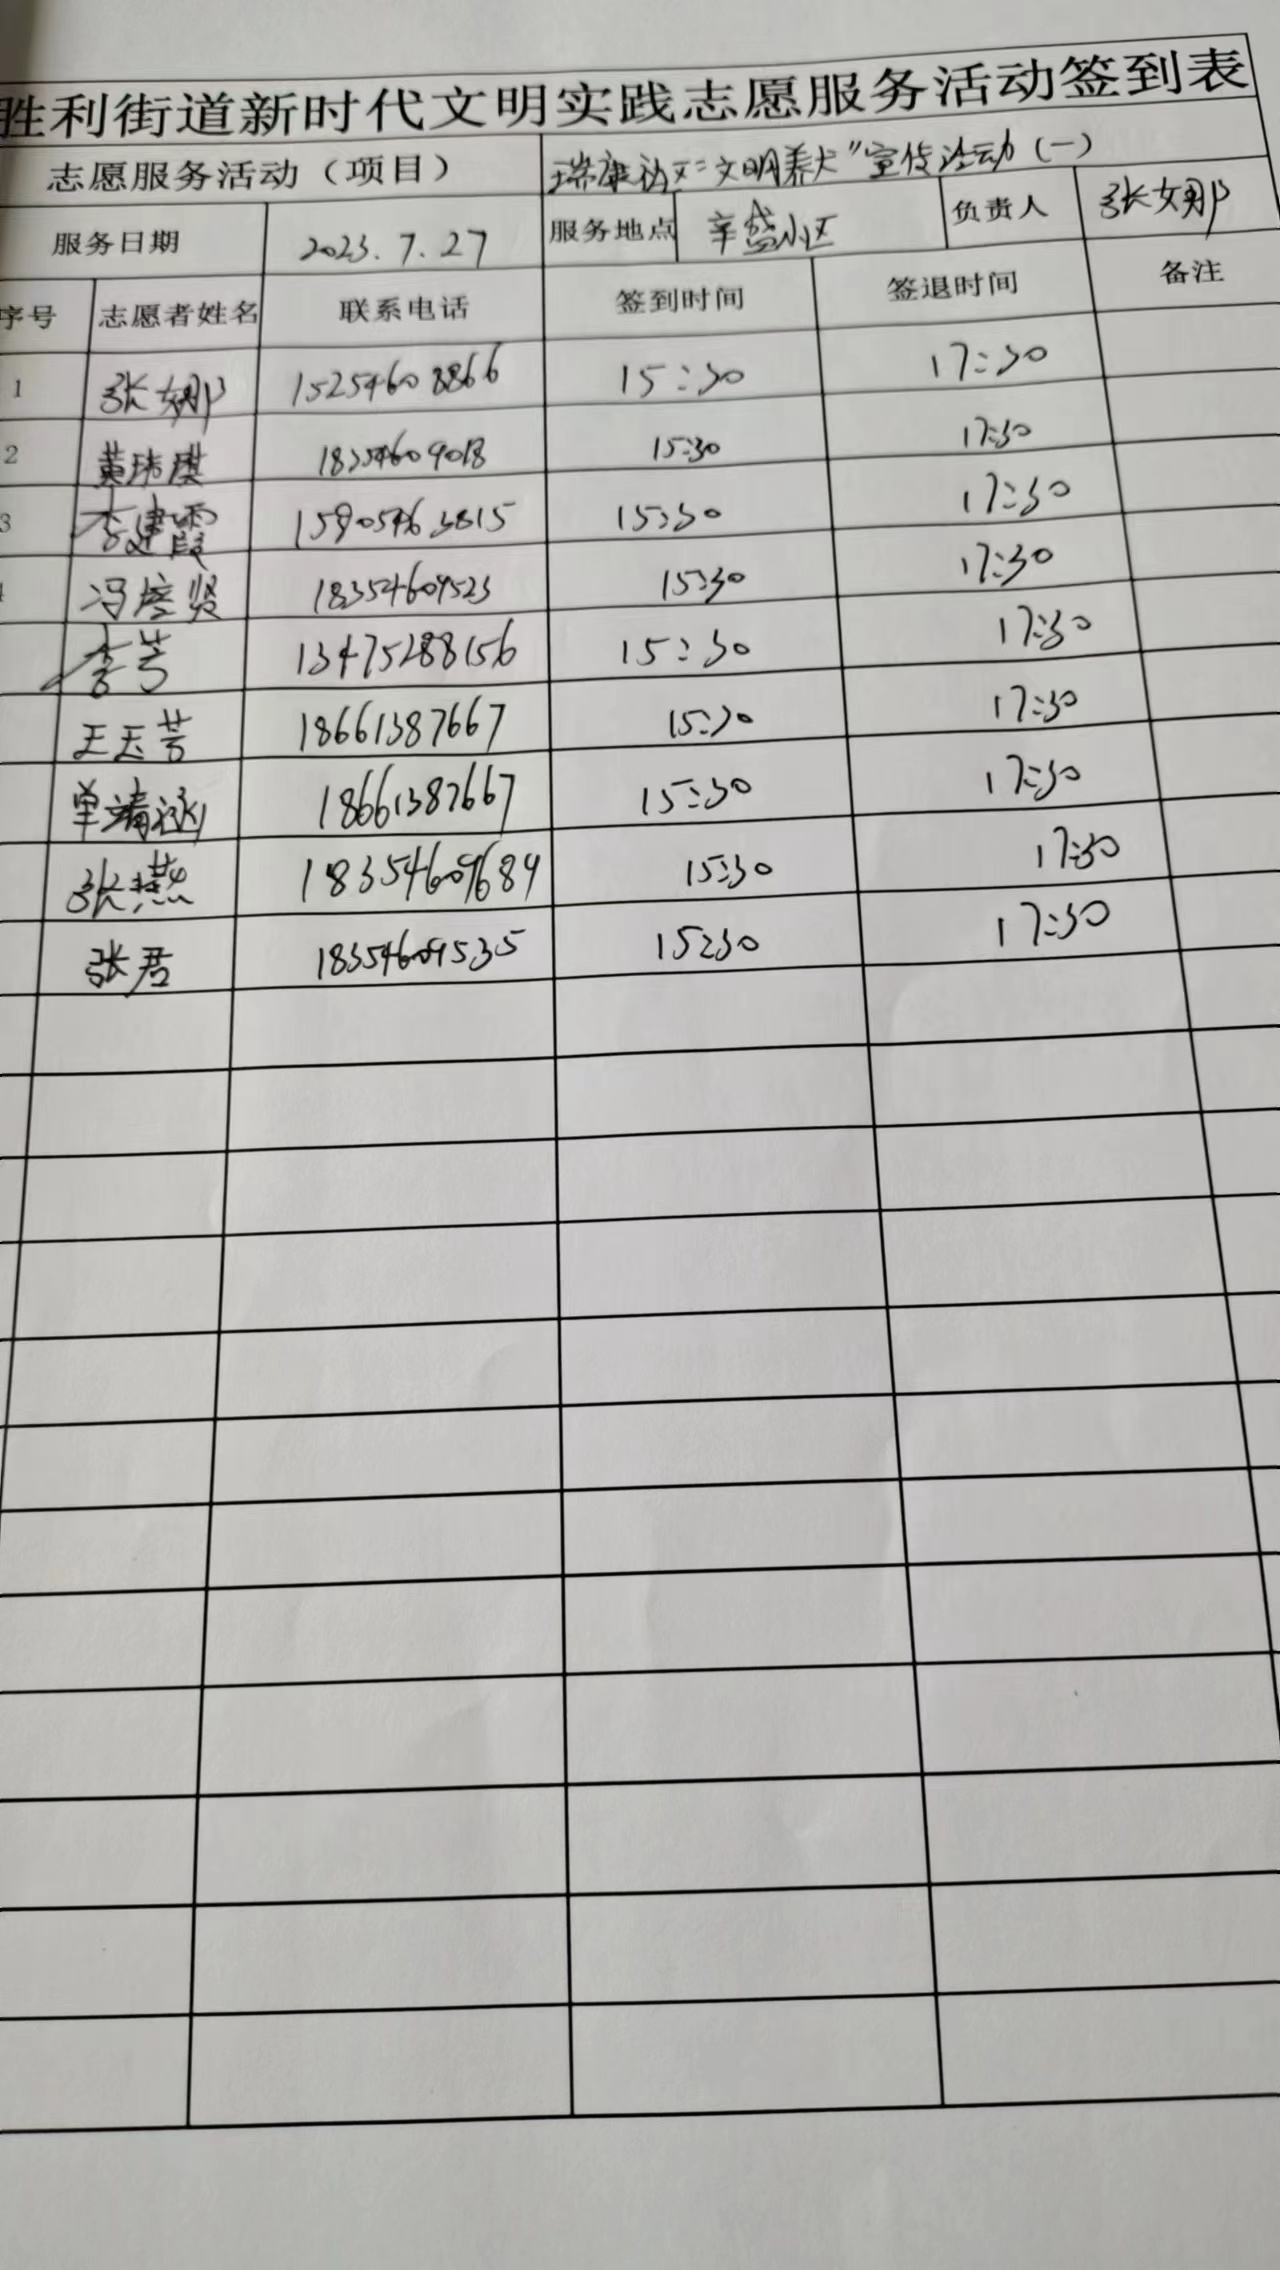 胜利街道新时代文明实践志愿服务活动签到表
志愿服务活动（项目） 瑞康社区"文明养犬"宣传活动（一）
服务日期 2023.7.27 服务地点 辛盛小区 负责人 张女那
序号 志愿者姓名 联系电话 签到时间 签退时间 备注
1 张娜 15254608866 15:30 17:30
2 黄玮琪 18354609018 15:30 17:30
3 李建霞 15905463815 15:30 17:30
冯彦贤 18354609523 15:30 17:30
李芳 13475288156 15:30 17:30
王玉芳 18661387667 15:30 17:30
单清涵 18661387667 15:30 17:30
张燕 18354609684 15:30 17:30
张君 18354609535 15:30 17:30